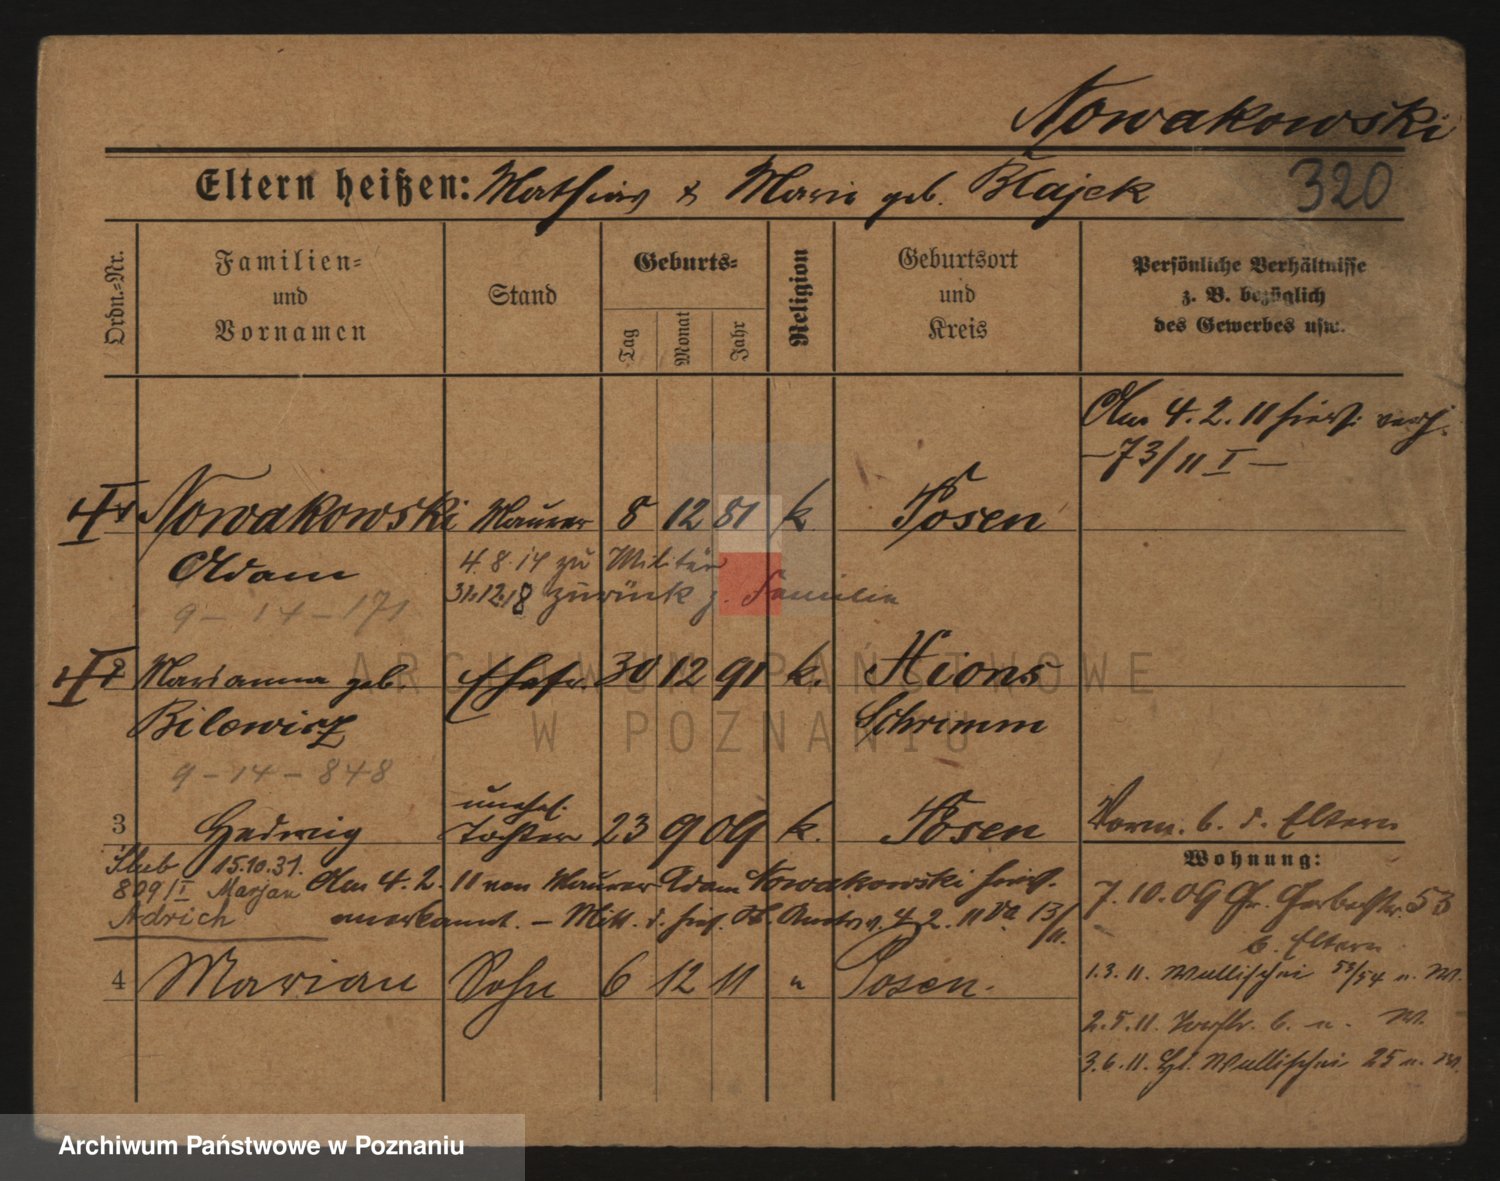 Nowakowski
Eltern heißen: Mathias & Marie geb. Błajek
320
Ordn.-Nr.
Familien- und Vornamen
Stand
Geburts-
Tag
Monat
Jahr
Religion
Geburtsort und Kreis
Persönliche Verhältnisse
z. B. bezüglich
des Gewerbes usw.
Am 4. 2. 11 hies. verh.
– 73/11 I –
Nowakowski Maurer 8 12 81 k Posen
Adam
4. 8. 14 zu Militär
31.12.18 zurück z. Familie
9 – 14 – 171
Marianna geb. Ehefr. 30 12 91 k. Xions
Bilewicz Schrimm
9 – 14 – 848
unehel.
3 Hedwig Tochter 23 9 09 k. Posen
Vorm. b. d. Eltern
Wohnung:
Ślub 15.10.31.
809/I Marjan
Am 4. 2. 11 von Maurer Adam Nowakowski hies.
anerkannt. – Mitt. d. hies. St. Amts v. 4. 2. 11 13/11.
7. 10. 09 Gr. Gerberstr. 53
b. Eltern
4 Marian Sohn 6 12 11 " Posen.
1. 3. 11. Wallischei 53/54 n. W.
2. 5. 11. 6. n. W.
3. 6. 11. Wallischei 25 n. W.
ARCHIWUM PAŃSTWOWE
W POZNANIU
Archiwum Państwowe w Poznaniu